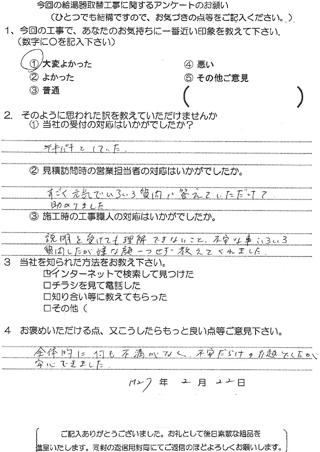 今回の給湯器取替工事に関するアンケートのお願い
(ひとつでも結構ですので、お気づきの点等をご記入ください。)
1、今回の工事で、あなたのお気持ちに一番近い印象を教えて下さい。
(数字に○を記入下さい)
① 大変よかった ④ 悪い
② よかった ⑤ その他ご意見
③ 普通 ( )
2. そのように思われた訳を教えていただけませんか
① 当社の受付の対応はいかがでしたか?
テキパキとしていた
② 見積訪問時の営業担当者の対応はいかがでしたか。
すごく元気でいろいろ質問に答えていただけて
助かりました
③ 施工時の工事職人の対応はいかがでしたか。
説明を受けても理解できないこと、不安な事いろいろ
質問したが嫌な顔一つせず教えてくれました
3 当社を知られた方法をお教え下さい。
☑インターネットで検索して見つけた
□チラシを見て電話した
□知り合い等に教えてもらった
□その他 (
4 お褒めいただける点、又こうしたらもっと良い点等ご意見下さい。
全体的に何も不満がなく、不安だらけの
安心できました
H27 年 2 月 22 日
ご記入ありがとうございました。お礼として後日素敵な粗品を
進呈いたします。同封の返信用封筒にてご返信のほどよろしくお願いします。